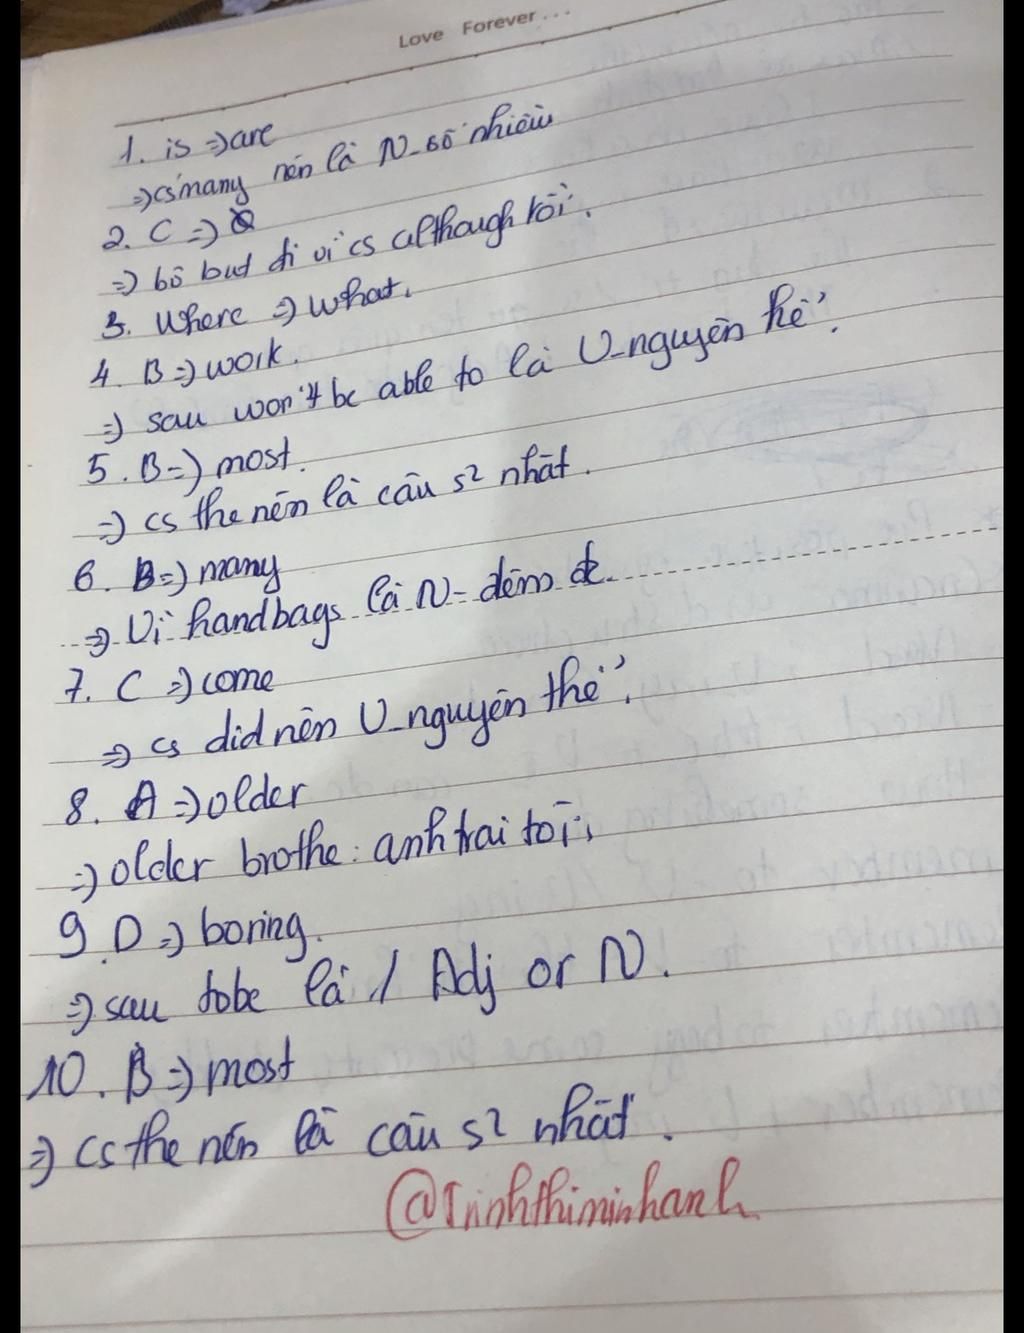 Love Forever...
1. is => are
=> cs many nên là N-số nhiều
2. C => Ø
=> bỏ but đi vì cs although rồi.
3. Where => What.
4. B => work.
=> sau won't be able to là V-nguyên thể.
5. B => most.
=> cs the nên là câu s² nhất.
6. B => many
=> Vì handbags là N- đếm đc.
7. C => come
=> cs did nên V-nguyên thể.
8. A => older
=> older brothe: anh trai tôi.
9. D => boring.
=> sau tobe là 1 Adj or N.
10. B => most
=> cs the nên là câu s² nhất.
@Trinhthiminhanh